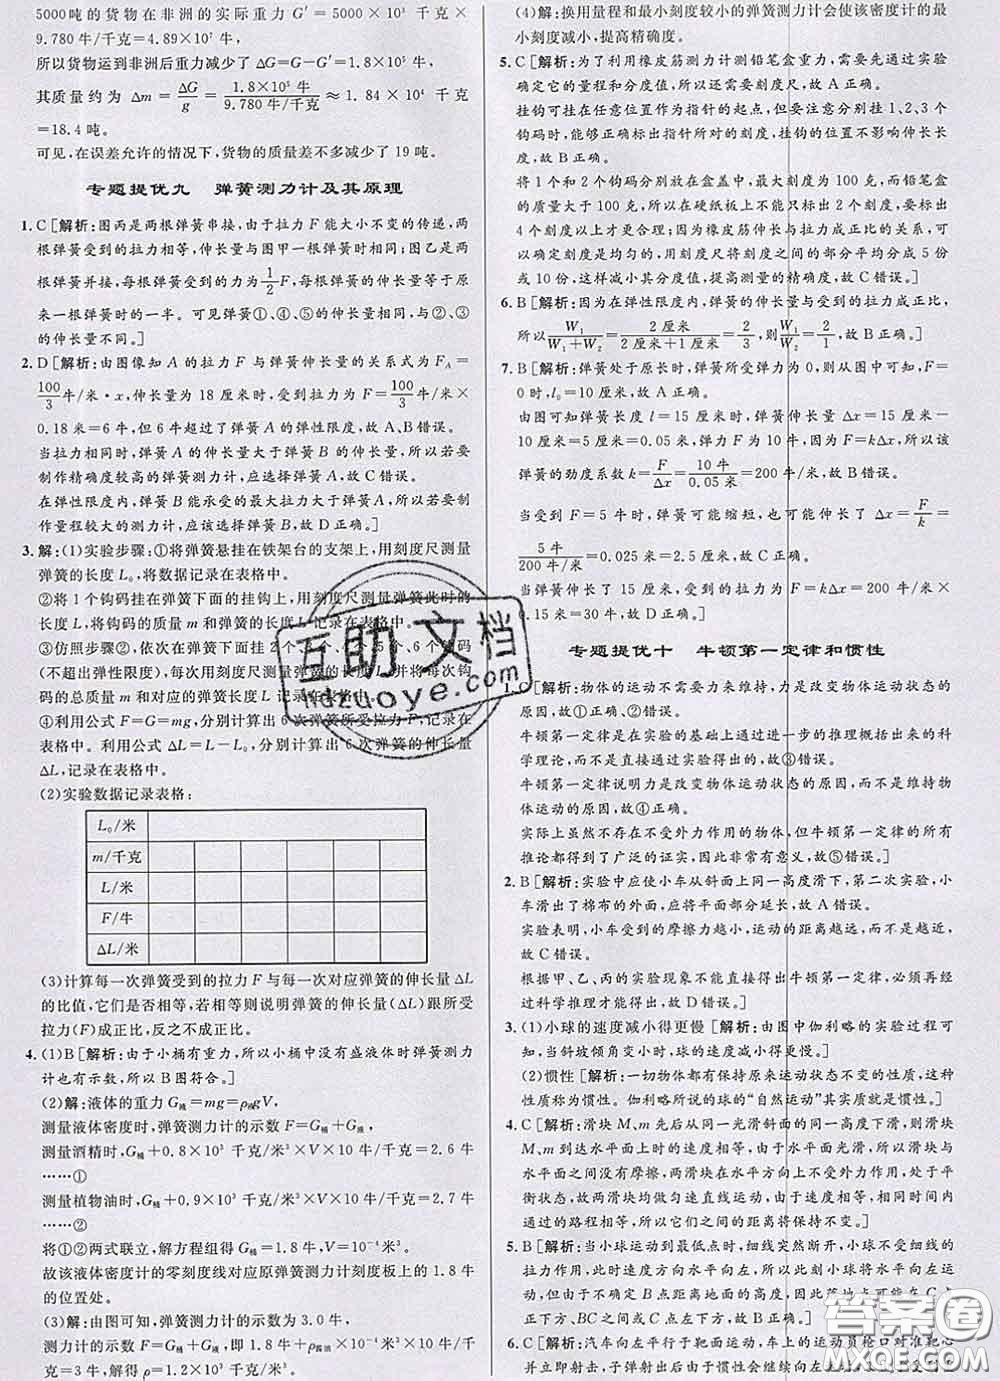 5000吨的货物在非洲的实际重力 G′=5000×10³ 千克×
9.780 牛/千克=4.89×10⁷ 牛,
所以货物运到非洲后重力减少了 ΔG=G−G′=1.8×10⁵ 牛,
其质量约为 Δm=ΔG/g=1.8×10⁵牛/9.780 牛/千克≈1.84×10⁴ 千克
=18.4 吨。
可见,在误差允许的情况下,货物的质量差不多减少了 19 吨。
专题提优九 弹簧测力计及其原理
1.C [解析:图丙是两根弹簧串接,由于拉力 F 能大小不变的传递,两
根弹簧受到的拉力相等,伸长量与图甲一根弹簧时相同;图乙是两
根弹簧并接,每根弹簧受到的力为1/2F,每根弹簧伸长量等于原
来一根弹簧时的一半。可见弹簧①、④、⑤的伸长量相同,与②、③
的伸长量不同。]
2.D [解析:由图像知 A 的拉力 F 与弹簧伸长量的关系式为 F_A=
100/3牛/米·x,伸长量为 18 厘米时,受到的拉力 F=100/3牛/米×
0.18米=6牛,但 6牛超过了弹簧 A 的弹性限度,故A、B错误。
当拉力相同时,弹簧 A 伸长量大于弹簧 B 的伸长量,所以若要
制作精确度较高的弹簧测力计,应选择弹簧 A,故 C 错误。
在弹性限度内,弹簧 B 能承受的最大拉力大于弹簧 A,所以若要制
作量程较大的测力计,应该选择弹簧 B,故 D 正确。]
3.解:(1)实验步骤:①将弹簧悬挂在铁架台的支架上,用刻度尺测量
弹簧的长度 L₀,将数据记录在表格中。
②将 1 个钩码挂在弹簧下面的挂钩上,用刻度尺测量弹簧此时的
长度 L,将钩码的质量 m 和弹簧的长度 L 记录在表格中。
③仿照步骤②,在弹簧下面挂 2 个、3 个、4 个、5 个、6 个钩码
(不超出弹性限度),用刻度尺测量弹簧的长度,并将每次钩
码的总质量 m 和对应的弹簧长度 L 记录在表格中。
④利用公式 F=G=mg,分别计算出 6 次弹簧所受拉力 F,记录在
表格中。利用公式 ΔL=L−L₀,分别计算出 6 次弹簧的伸长量
ΔL,记录在表格中。
(2)实验数据记录表格:
L₀/米
m/千克
L/米
F/牛
ΔL/米
(3)计算每一次弹簧受到的拉力 F 与每一次对应弹簧的伸长量 ΔL
的比值,它们是否相等,若相等则说明弹簧的伸长量(ΔL)跟所受
拉力(F)成正比,反之不成正比。
4.(1)B [解析:由于小桶有重力,所以小桶中没有盛液体时弹簧测力
计也有示数,所以 B 图符合。]
(2)解:液体的重力 G液=mg=ρ液gV,
测量液体密度时,弹簧测力计的示数 F=G桶+G液,
测量酒精时,G桶+0.8×10³ 千克/米³×V×10 牛/千克=2.6 牛
……①
测量植物油时,G桶+0.9×10³ 千克/米³×V×10 牛/千克=2.7 牛
……②
将①②两式联立,解方程组得 G桶=1.8牛,V=10⁻⁴米³。
故该液体密度计的零刻度线对应原弹簧测力计刻度板上的 1.8 牛
的位置处。
(3)解:由图可知,弹簧测力计的示数为 3.0 牛,
测力计的示数 F=G桶+G液,即 1.8 牛+ρ酱油×10⁻⁴ 米³×10 牛/千克
=3 牛,解得 ρ=1.2×10³ 千克/米³。
(4)解:换用量程和最小刻度较小的弹簧测力计会使该密度计的
最小刻度减小,提高精确度。
5.C [解析:为了利用橡皮筋测力计测铅笔盒重力,需要先通过实验
确定它的量程和分度值,所以还需要刻度尺,故 A 正确。
挂钩可挂在任意位置作为指针的起点,但要注意分别挂 1、2、3 个
钩码时,能够正确标出指针所对的刻度,挂钩的位置不影响伸长长
度,故 B 正确。
将 1 个和 2 个钩码分别放在盒盖中,最大刻度为 100 克,而铅笔盒
的质量大于 100 克,所以在硬纸板上不能只标出 2 个刻度,要标出
4 个刻度以上才更合理;因为橡皮筋伸长与拉力成正比的关系,可
以确定刻度是均匀的,用刻度尺将刻度之间的部分平均分成 5 份
或 10 份,这样减小其分度值,提高测量的精确度,故 C 错误。]
6.B [解析:因为在弹性限度内,弹簧的伸长量与受到的拉力成正比,
所以W₁/(W₁+W₂)=2厘米/(2厘米+1厘米)=2/3,则W₁/W₂=2/1,故 B 正确。]
7.B [解析:弹簧处于原长时,弹簧所受弹力为 0,则从图中可知,F=
0 时,l₀=10 厘米,故 A 正确。
由图可知弹簧长度 l=15 厘米时,弹簧伸长量 Δx=15 厘米−
10 厘米=5 厘米=0.05 米,弹力 F=10 牛,因为 F=kΔx,所以该
弹簧的劲度系数 k=F/Δx=10牛/0.05米=200 牛/米,故 B 错误。
当受到 F=5 牛时,弹簧可能缩短,也可能伸长了 Δx=F/k=
5牛/200牛/米=0.025 米=2.5 厘米,故 C 正确。
当弹簧伸长了 15 厘米,受到的拉力为 F=kΔx=200 牛/米×
0.15米=30 牛,故 D 正确。]
专题提优十 牛顿第一定律和惯性
[解析:物体的运动不需要力来维持,力是改变物体运动状态的
原因,故①正确,②错误。
牛顿第一定律是在实验的基础上通过进一步的推理概括出来的科
学理论,而不是通过实验直接得出的,故③错误。
牛顿第一定律说明力是改变物体运动状态的原因,而不是维持物
体运动的原因,故④正确。
实际上虽然不存在不受外力作用的物体,但牛顿第一定律的所有
推论都得到了广泛的证实,因此是非常有意义的,故⑤错误。]
2.B [解析:实验中应使小车从斜面上同一高度滑下,第二次实验,小
车滑出了棉布的外面,应将平面部分延长,故 A 错误。
实验表明,小车受到的摩擦力越小,运动的距离越远,而不是越大,
故 C 错误。
根据甲、乙、丙的实验现象不能直接得出牛顿第一定律,必须再经
过科学推理才能得出,故 D 错误。]
3.(1)小球的速度减小得更慢 [解析:由图中伽利略的实验过程可
知,当斜坡倾角变小时,球的速度减小得更慢。]
(2)惯性 [解析:一切物体都有保持原来运动状态不变的性质,这种
性质称为惯性。伽利略所说的球的“自然运动”其实质就是惯性。]
4.C [解析:滑块 M、m 先后从同一光滑斜面的同一高度下滑,则滑块
M、m 到达水平面上时的速度相等,由于水平面光滑,所以滑块与
水平面之间没有摩擦,两滑块在水平方向上不受外力作用,处于平
衡状态,故两滑块均做匀速直线运动,由于速度相等,相同时间内
通过的路程相等,所以它们之间的距离将保持不变。]
5.B [解析:当小球运动到最低点时,细线突然断开,小球不再受线的
拉力作用,此时速度方向水平向左,所以此刻小球将水平向左运
动,但由于不确定 B 点距离底面的高度,因此落点可能在 C 点正
下方、BC 之间或 C 点左下方,故 B 正确。]
6.C [解析:汽车向左平行于靶面运动,车上的运动员枪口对准靶心
并立即射击,子弹射出后由于惯性会继续向左
互助文档
hdzuoye.com
答案圈
MXQE.COM